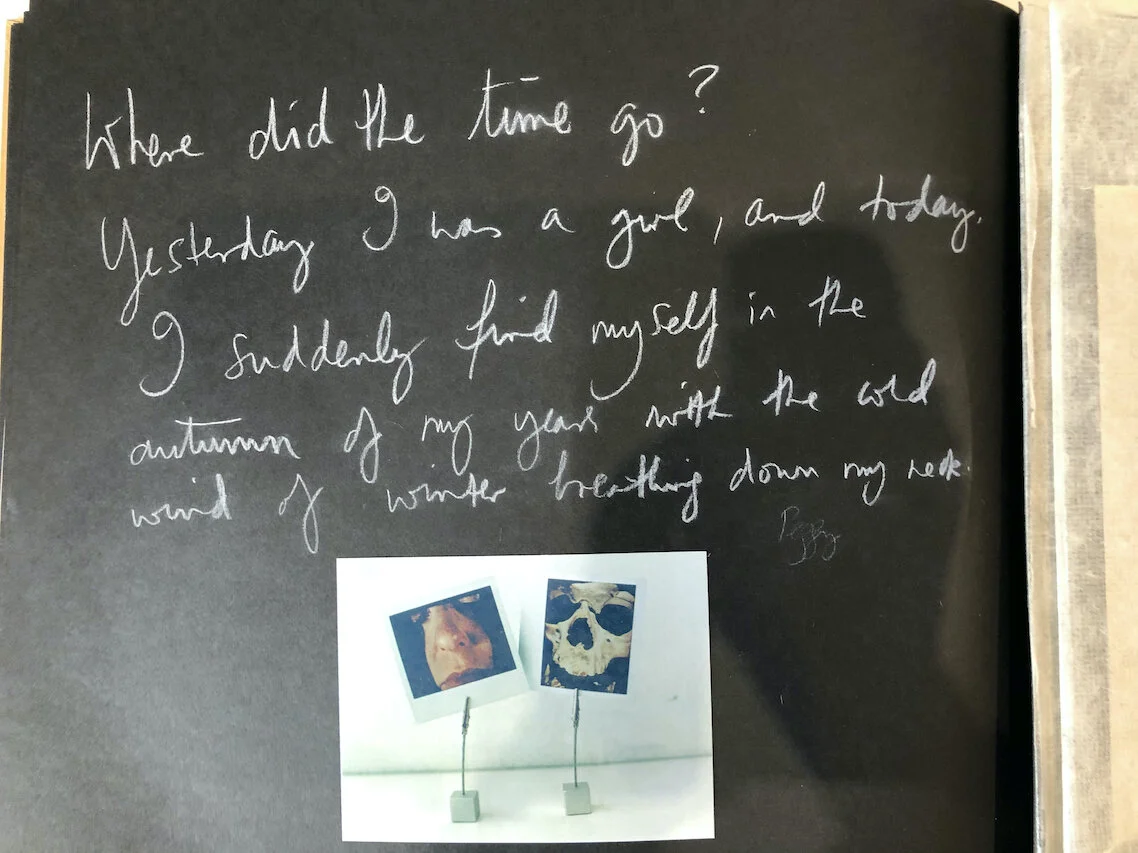 Where did the time go?
Yesterday I was a girl, and today,
I suddenly find myself in the
autumn of my years with the cold
wind of winter breathing down my neck.
Peggy